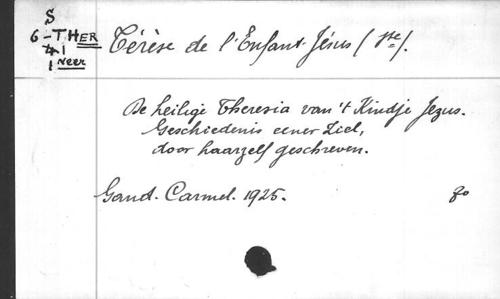 S
6-THER
41
1 Neer
Térèse de l'Enfant-Jésus (Ste).
De heilige Theresia van 't Kindje Jezus.
Geschiedenis eener Ziel,
door haarzelf geschreven.
Gand. Carmel. 1925.